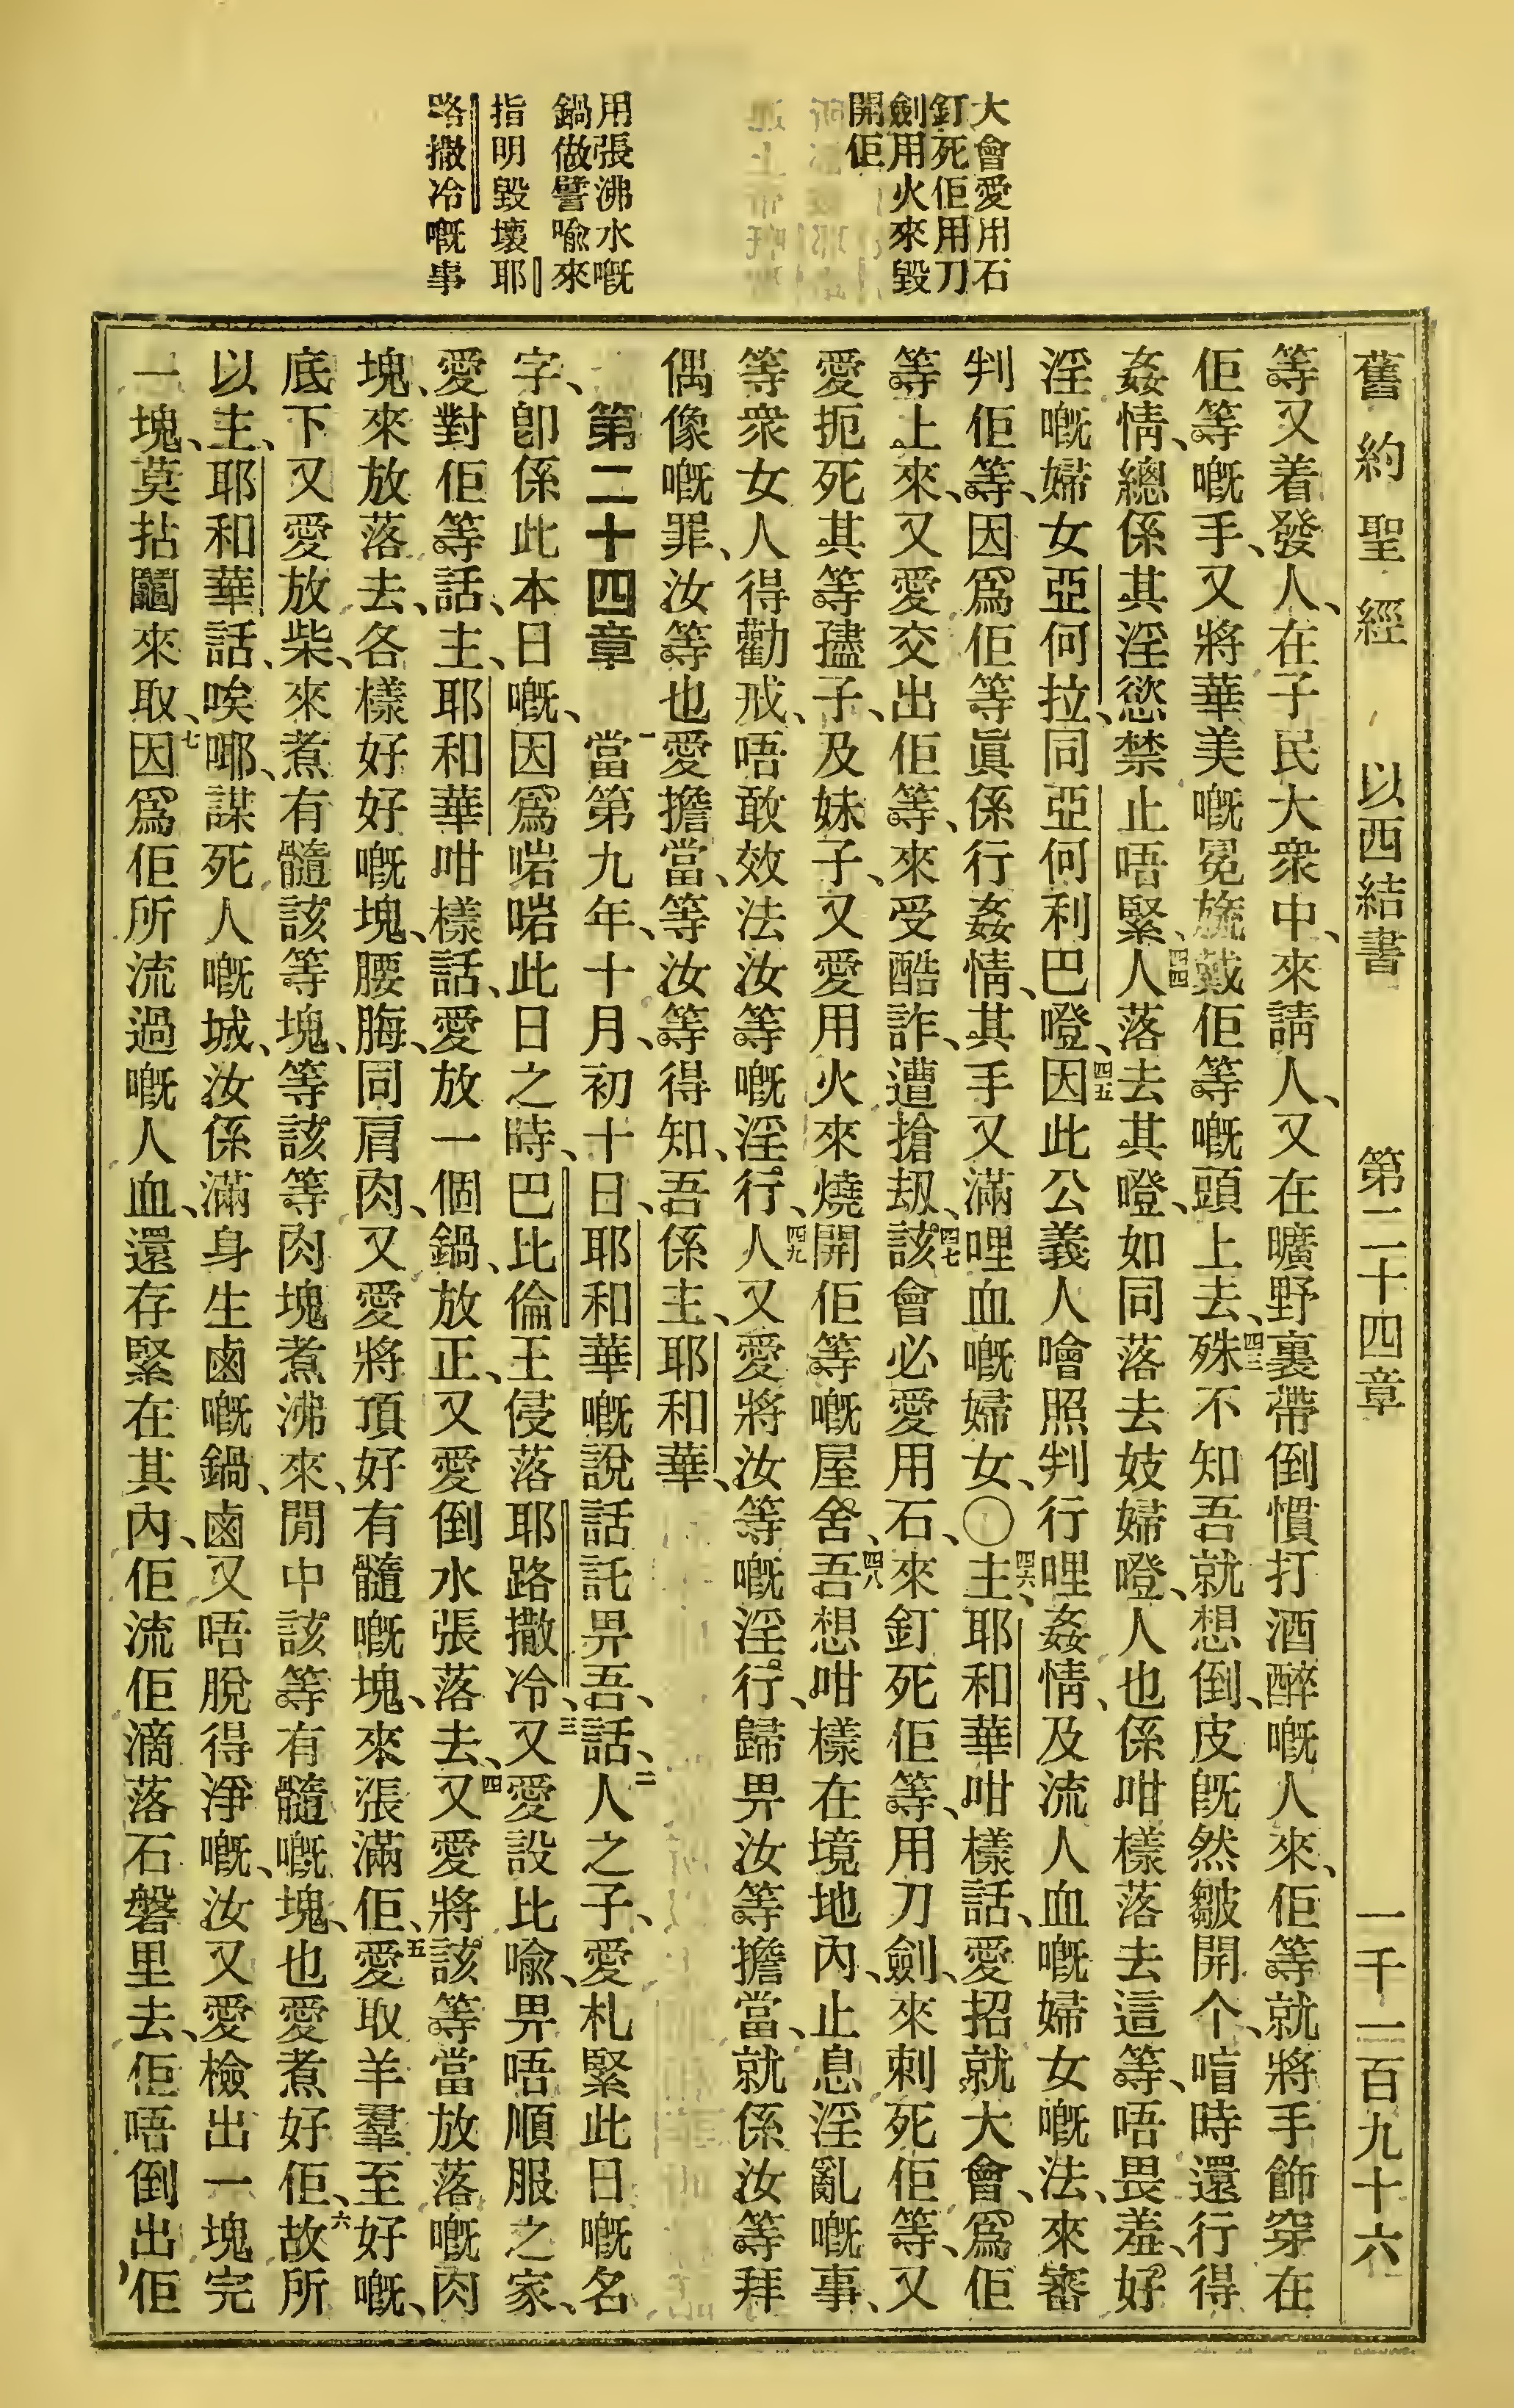 大會愛用石
釘死佢用刀
劍用火來毀
開佢
用張沸水嘅
鍋做譬喩來
指明毀壞耶
路撒冷嘅事
舊約聖經 以西結書 第二十四章 一千一百九十六
等又着發人、在子民大衆中、來請人、又在曠野裏帶倒慣打酒醉嘅人來、佢等就將手飾穿在
佢等嘅手、又將華美嘅冕旒戴佢等嘅頭上去、四三殊不知吾就想倒、皮旣然皺開个、喑時還行得
姦情、總係其淫慾禁止唔緊、四四人落去其嘡、如同落去妓婦嘡、人也係咁樣落去這等、唔畏羞、好
淫嘅婦女亞何拉、同亞何利巴嘡、四五因此公義人噲照判行哩姦情、及流人血嘅婦女嘅法、來審
判佢等、因爲佢等眞係行姦情、其手又滿哩血嘅婦女、〇四六主、耶和華咁樣話、愛招就大會、爲佢
等上來、又愛交出佢等、來受酷詐、遭搶刼、四七該會必愛用石、來釘死佢等、用刀劍、來刺死佢等、又
愛扼死其等孻子、及妹子、又愛用火來燒開佢等嘅屋舍、四八吾想咁樣在境地內、止息淫亂嘅事、
等衆女人得勸戒、唔敢效法汝等嘅淫行、四九人又愛將汝等嘅淫行、歸畀汝等擔當、就係汝等拜
偶像嘅罪、汝等也愛擔當、等汝等得知、吾係主、耶和華、
第二十四章 一當第九年、十月、初十日、耶和華嘅說話託畀吾、話、二人之子、愛札緊此日嘅名
字、卽係此本日嘅、因爲啱啱此日之時、巴比倫王侵落耶路撒冷、三又愛設比喩、畀唔順服之家、
愛對佢等話、主、耶和華咁樣話、愛放一個鍋、放正、又愛倒水張落去、四又愛將該等當放落嘅肉
塊、來放落去、各樣好好嘅塊、腰脢、同肩肉、又愛將頂好有髓嘅塊、來張滿佢、五愛取羊羣至好嘅、
底下又愛放柴、來煮有髓該等塊、等該等肉塊煮沸來、閒中該等有髓嘅塊、也愛煮好佢、六故所
以主、耶和華話、唉㖿、謀死人嘅城、汝係滿身生鹵嘅鍋、鹵又唔脫得淨嘅、汝又愛檢出一塊完
一塊、莫拈鬮來取、七因爲佢所流過嘅人血、還存緊在其內、佢流佢滴落石磐里去、佢唔倒出、佢